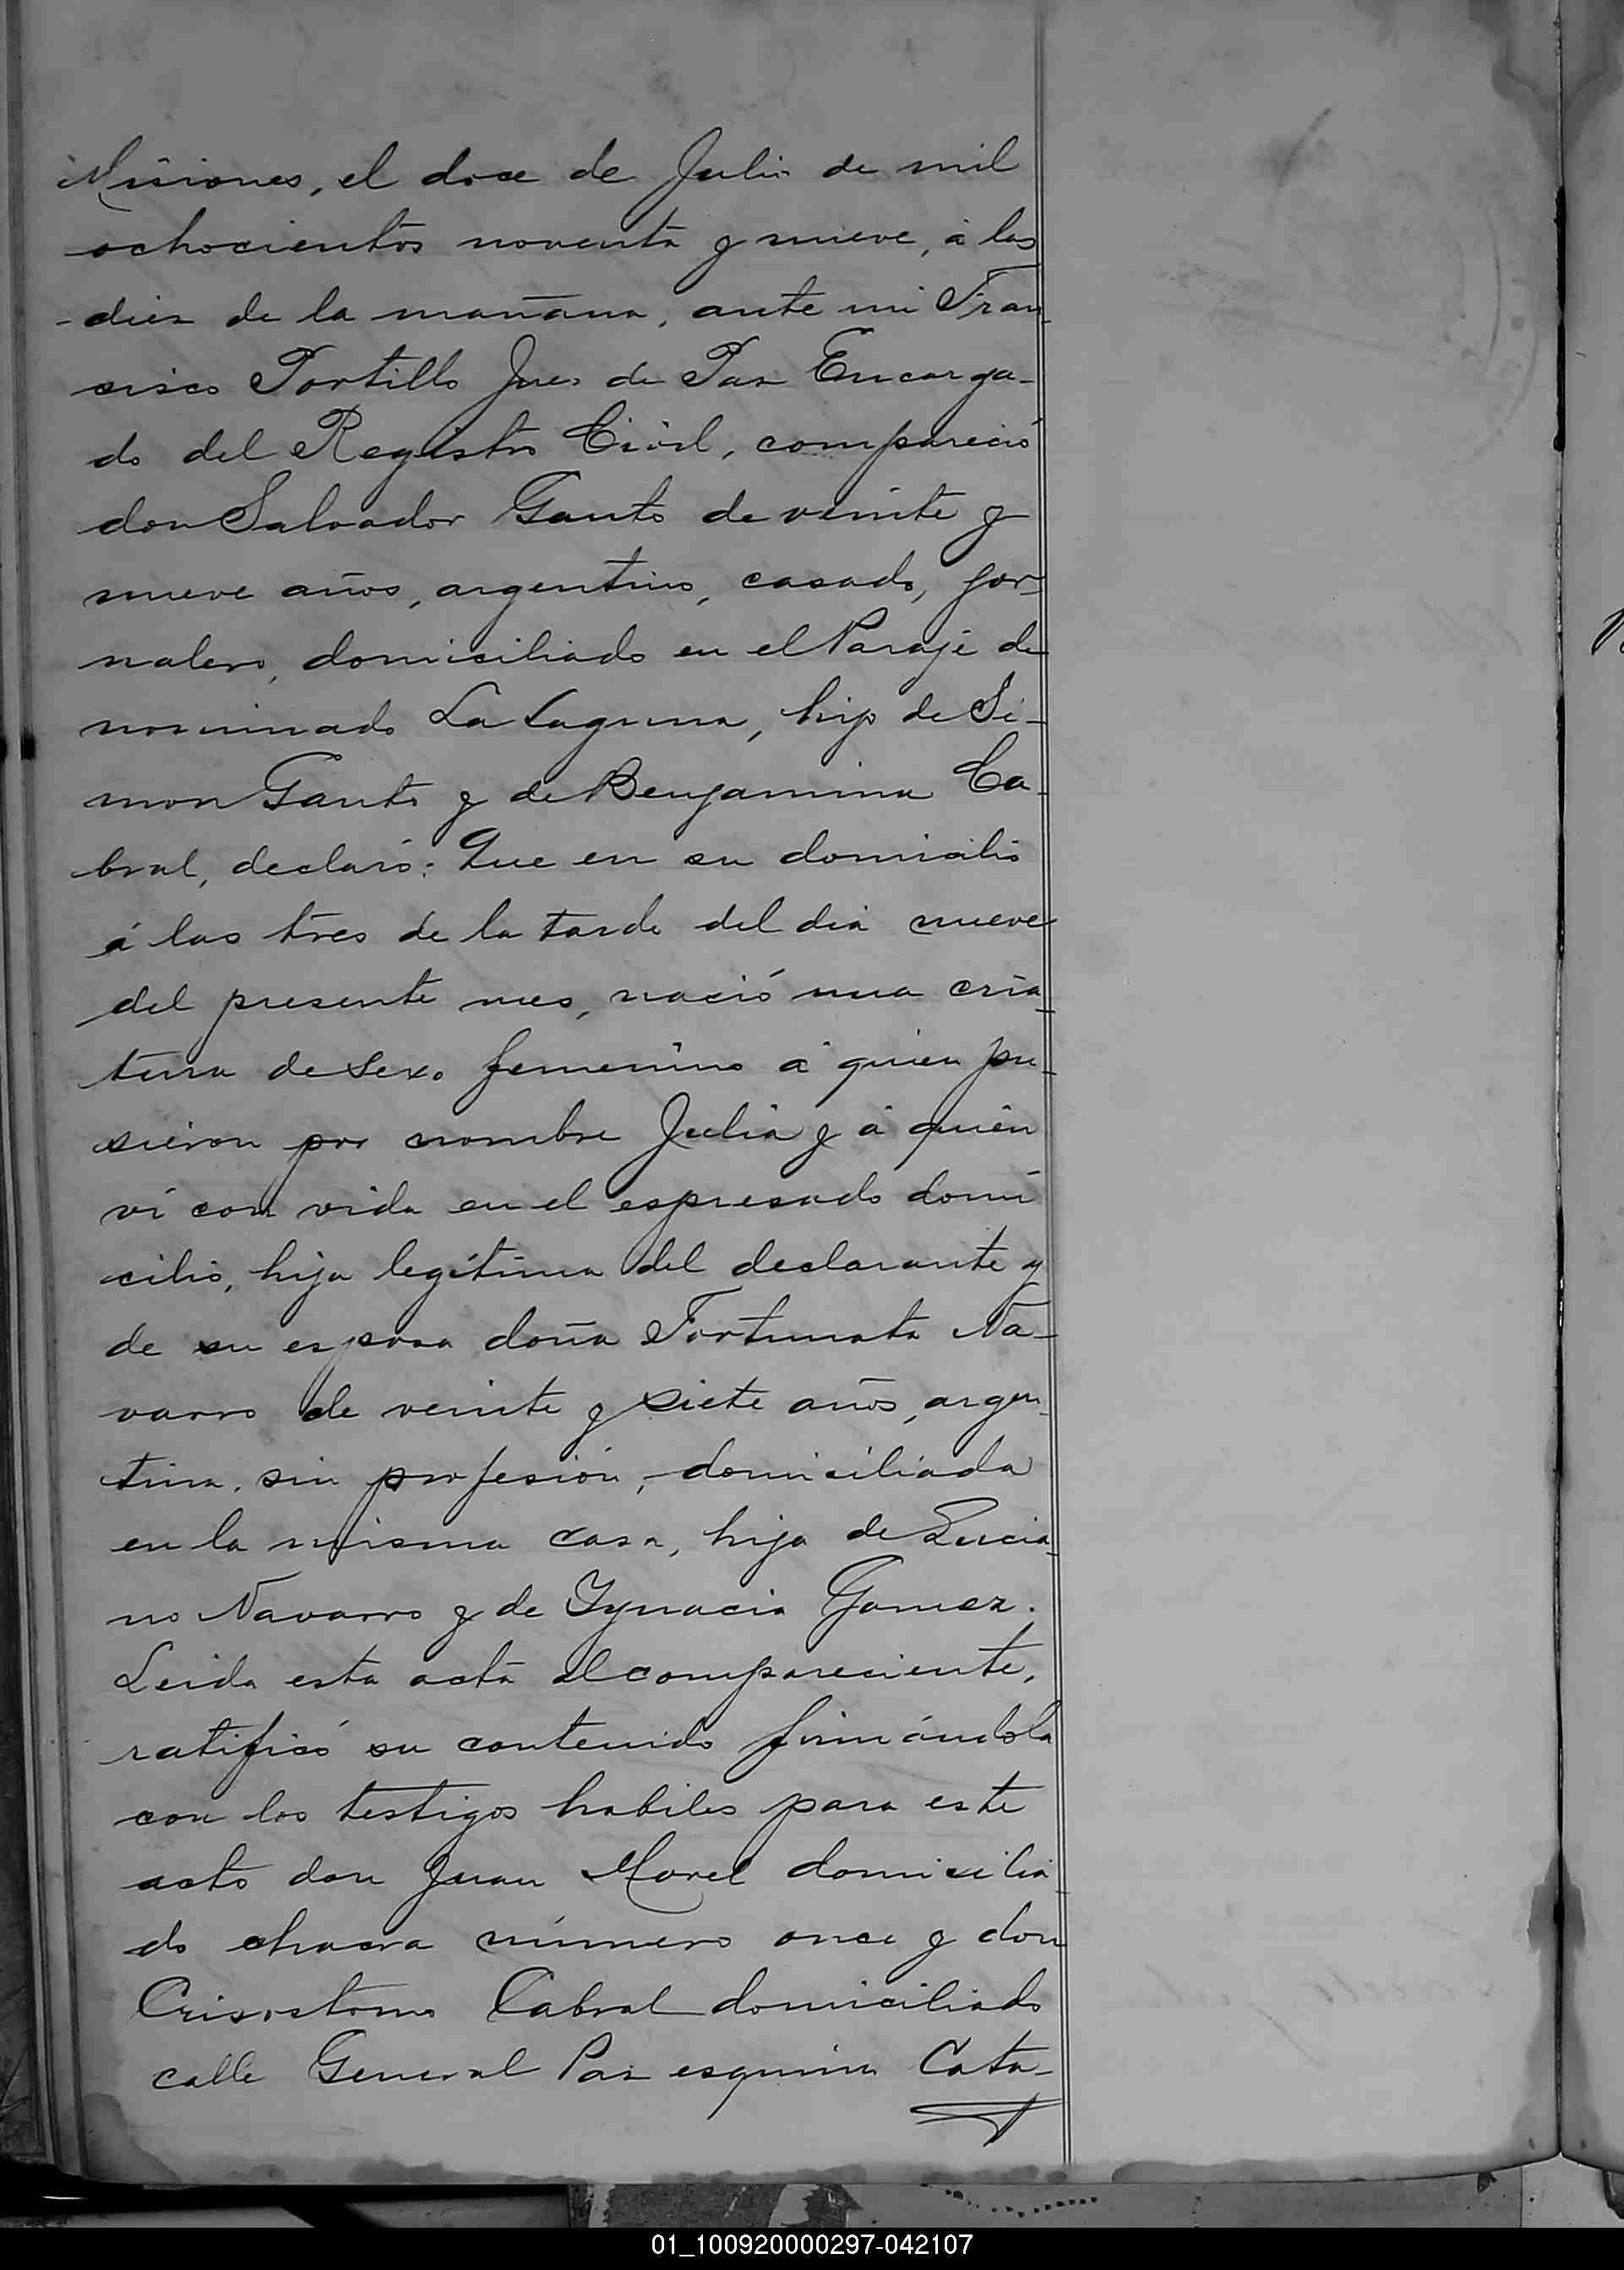 Misiones, el doce de Julio de mil
ochocientos noventa y nueve, á las
diez de la mañana, ante mi Fran-
cisco Portillo Juez de Paz Encarga-
do del Registro Civil, compareció
don Salvador Gauto de veinte y
nueve años, argentino, casado, jor-
nalero, domiciliado en el Paraje de
nominado La Laguna, hijo de Si-
mon Gauto y de Benjamina Ca-
bral, declaró: Que en su domicilio
á las tres de la tarde del dia nueve
del presente mes, nació una cria-
tura de sexo femenino á quien pu-
sieron por nombre Julia y á quien
ví con vida en el espresado domi
cilio, hija legítima del declarante y
de su esposa doña Fortunata Na-
varro de veinte y siete años, argen-
tina, sin profesión, domiciliada
en la misma casa, hija de Lucia-
no Navarro y de Ygnacia Gomez.
Leida esta acta al compareciente,
ratificó su contenido firmándola
con los testigos habiles para este
acto don Juan Morel domicilia-
do chacra número once y don
Crisostomo Cabral domiciliado
calle General Paz esquina Cata-
01_100920000297-042107